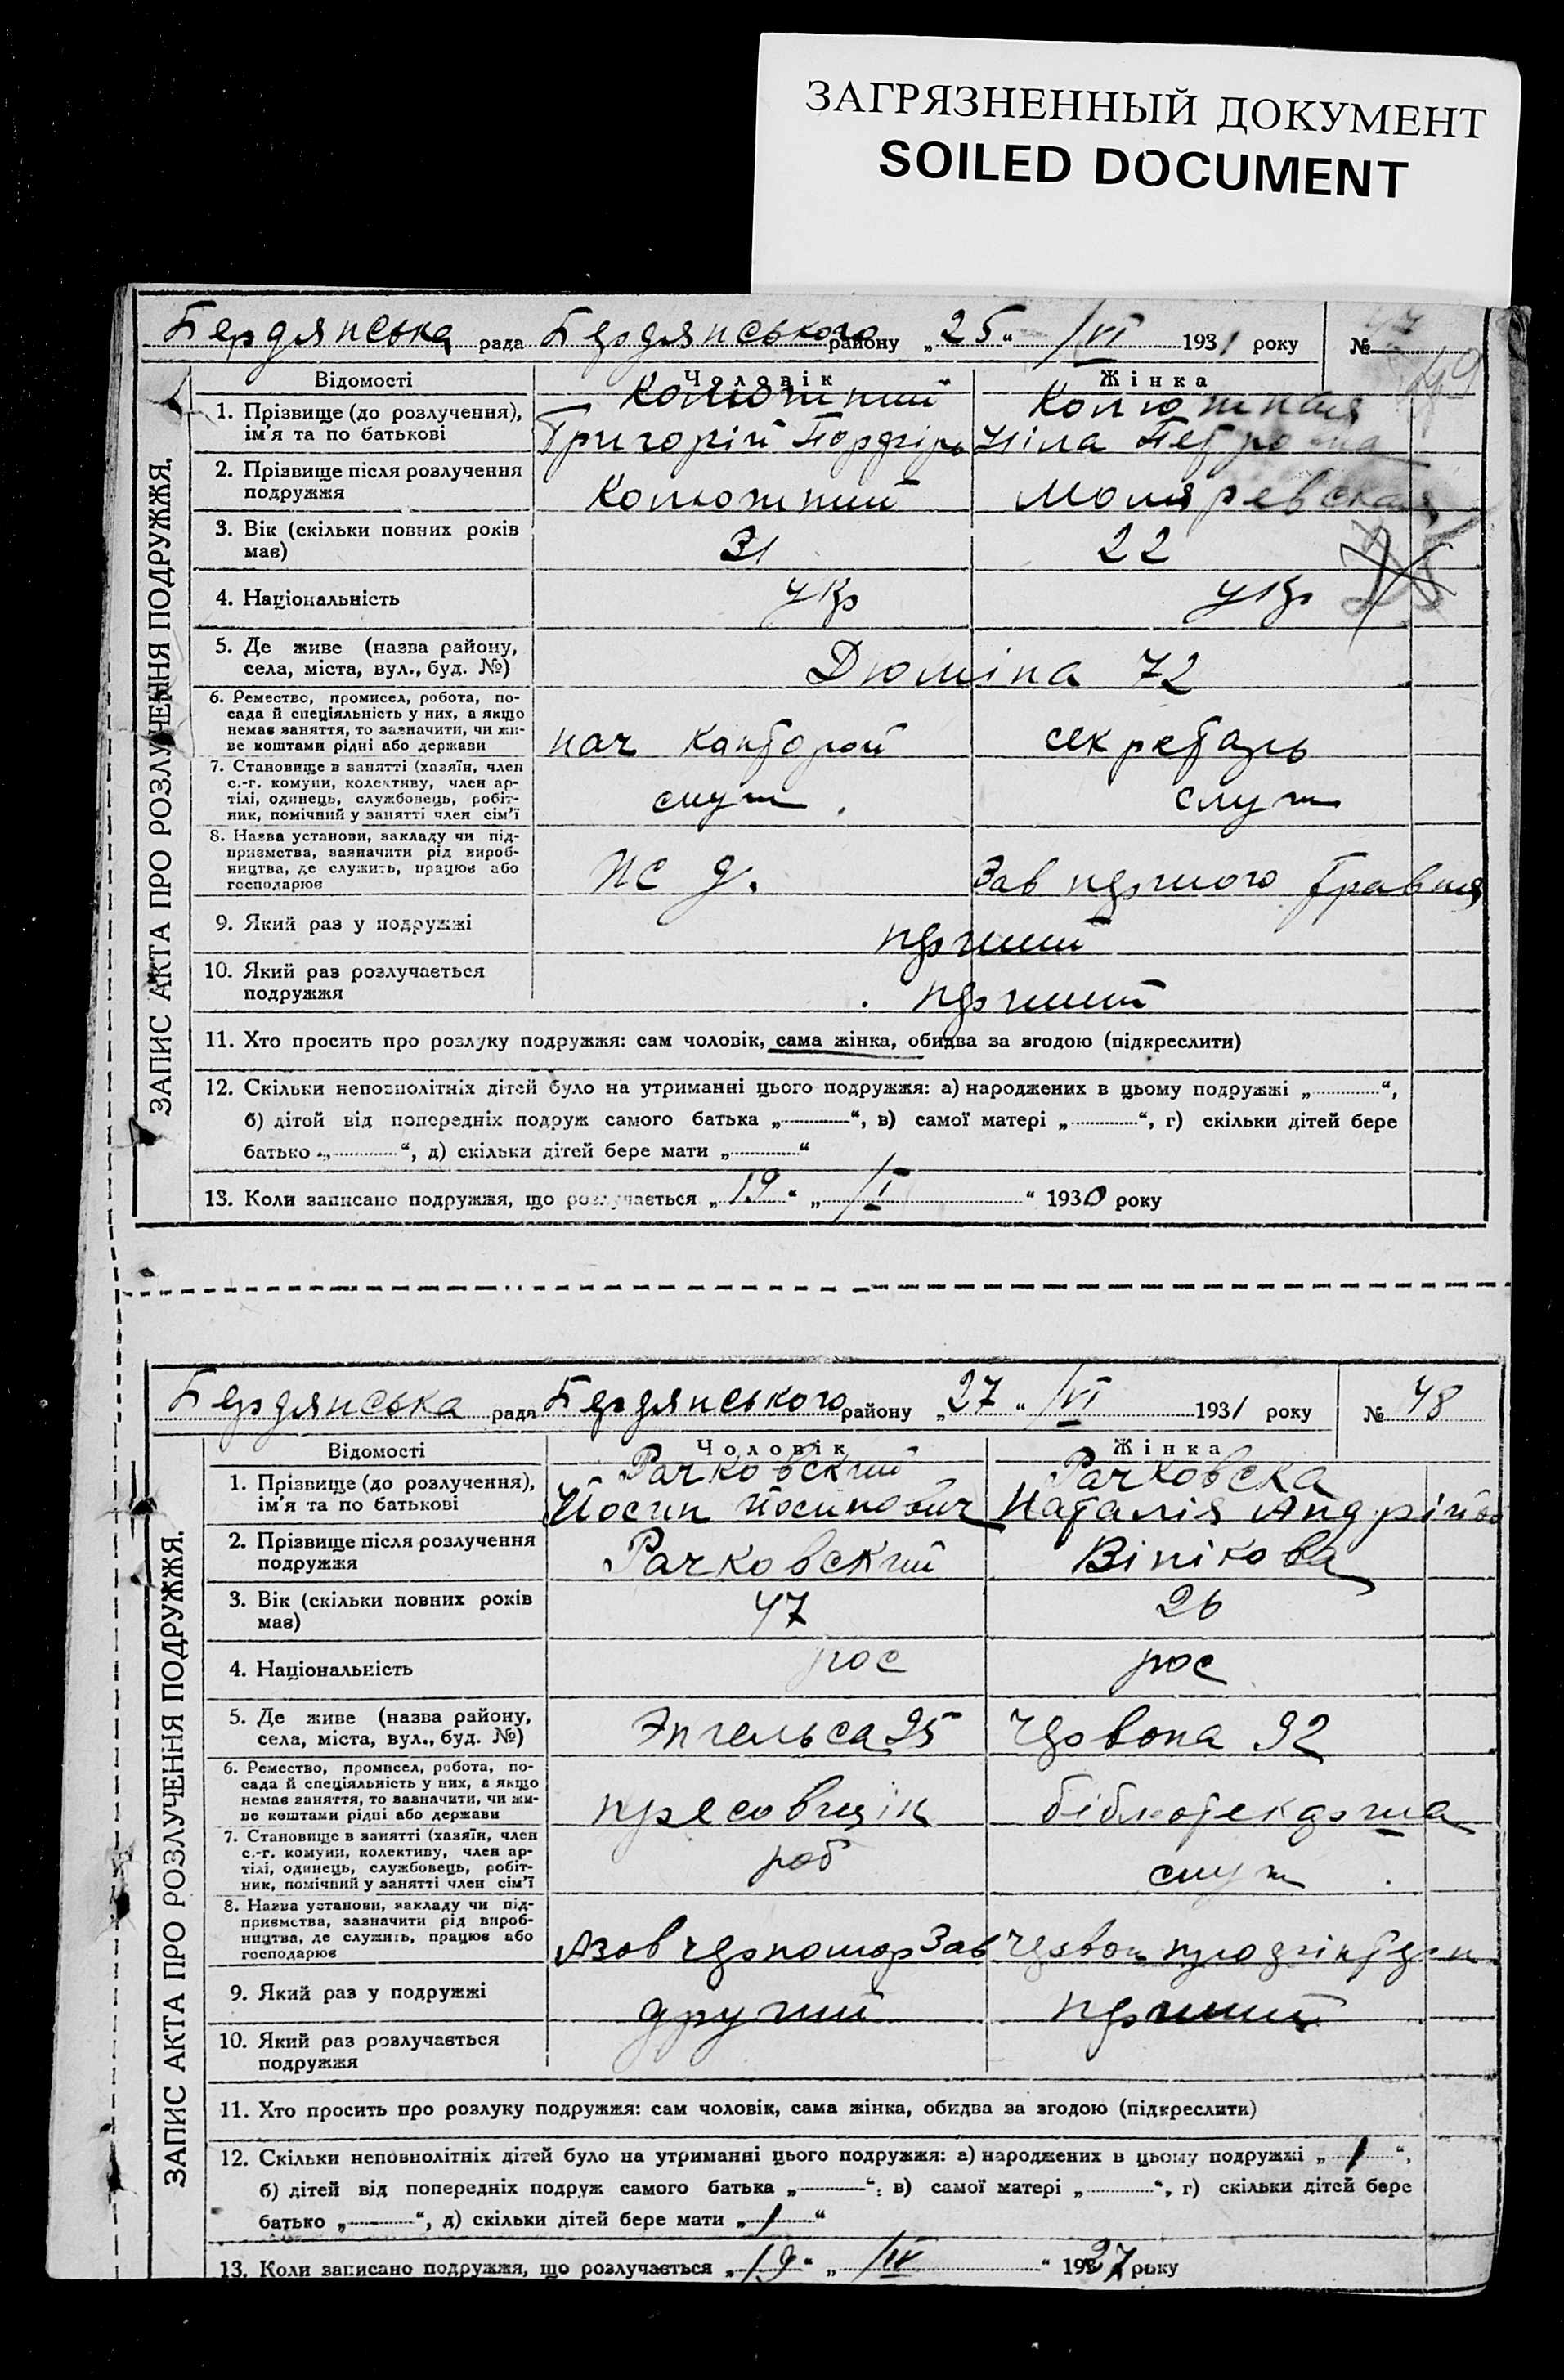 ЗАГРЯЗНЕННЫЙ ДОКУМЕНТ
SOILED DOCUMENT
Бердянська рада Бердянського району „25“ /VI 1931 року №
ЗАПИС АКТА ПРО РОЗЛУЧЕННЯ ПОДРУЖЖЯ.
Відомості Чоловік Жінка
1. Прізвище (до розлучення), ім'я та по батькові
Григорій Порфір Ніла Петровна
2. Прізвище після розлучення подружжя
3. Вік (скільки повних років має) 31 22
4. Національність укр укр
5. Де живе (назва району, села, міста, вул., буд. №) Дюміна 72
6. Ремество, промисел, робота, посада й спеціяльність у них, а якщо немає заняття, то зазначити, чи живе коштами рідні або держави
нач конторой секретарь
7. Становище в занятті (хазяїн, член с.-г. комуни, колективу, член артілі, одинець, службовець, робітник, помічний у занятті член сім'ї
служ служ
8. Назва установи, закладу чи підприємства, зазначити рід виробництва, де служить, працює або господарює
Зав першого травня
9. Який раз у подружжі перший
10. Який раз розлучається подружжя перший
11. Хто просить про розлуку подружжя: сам чоловік, сама жінка, обидва за згодою (підкреслити)
12. Скільки неповнолітніх дітей було на утриманні цього подружжя: а) народжених в цьому подружжі „ “,
б) дітой від попередніх подруж самого батька „ “, в) самої матері „ “, г) скільки дітей бере
батько „ “, д) скільки дітей бере мати „ “
13. Коли записано подружжя, що розлучається „19“ „/I “ 1930 року
Бердянська рада Бердянського району „27“ /VI 1931 року № 48
ЗАПИС АКТА ПРО РОЗЛУЧЕННЯ ПОДРУЖЖЯ.
Відомості Чоловік Жінка
1. Прізвище (до розлучення), ім'я та по батькові
Рачковский Рачковска
Йосип Йосипович Наталія Андрійов
2. Прізвище після розлучення подружжя
Рачковский Вінікова
3. Вік (скільки повних років має) 47 26
4. Національність рос рос
5. Де живе (назва району, села, міста, вул., буд. №) Энгельса 25 Червона 92
6. Ремество, промисел, робота, посада й спеціяльність у них, а якщо немає заняття, то зазначити, чи живе коштами рідні або держави
пресовщік бібліотекарша
7. Становище в занятті (хазяїн, член с.-г. комуни, колективу, член артілі, одинець, службовець, робітник, помічний у занятті член сім'ї
роб служ
8. Назва установи, закладу чи підприємства, зазначити рід виробництва, де служить, працює або господарює
Азовчерномор Зав Червон профінтерн
9. Який раз у подружжі другий перший
10. Який раз розлучається подружжя
11. Хто просить про розлуку подружжя: сам чоловік, сама жінка, обидва за згодою (підкреслити)
12. Скільки неповнолітніх дітей було на утриманні цього подружжя: а) народжених в цьому подружжі „1“,
б) дітей від попередніх подруж самого батька „ “, в) самої матері „ “, г) скільки дітей бере
батько „ “, д) скільки дітей бере мати „1“
13. Коли записано подружжя, що розлучається „19“ „/IV “ 1927 року